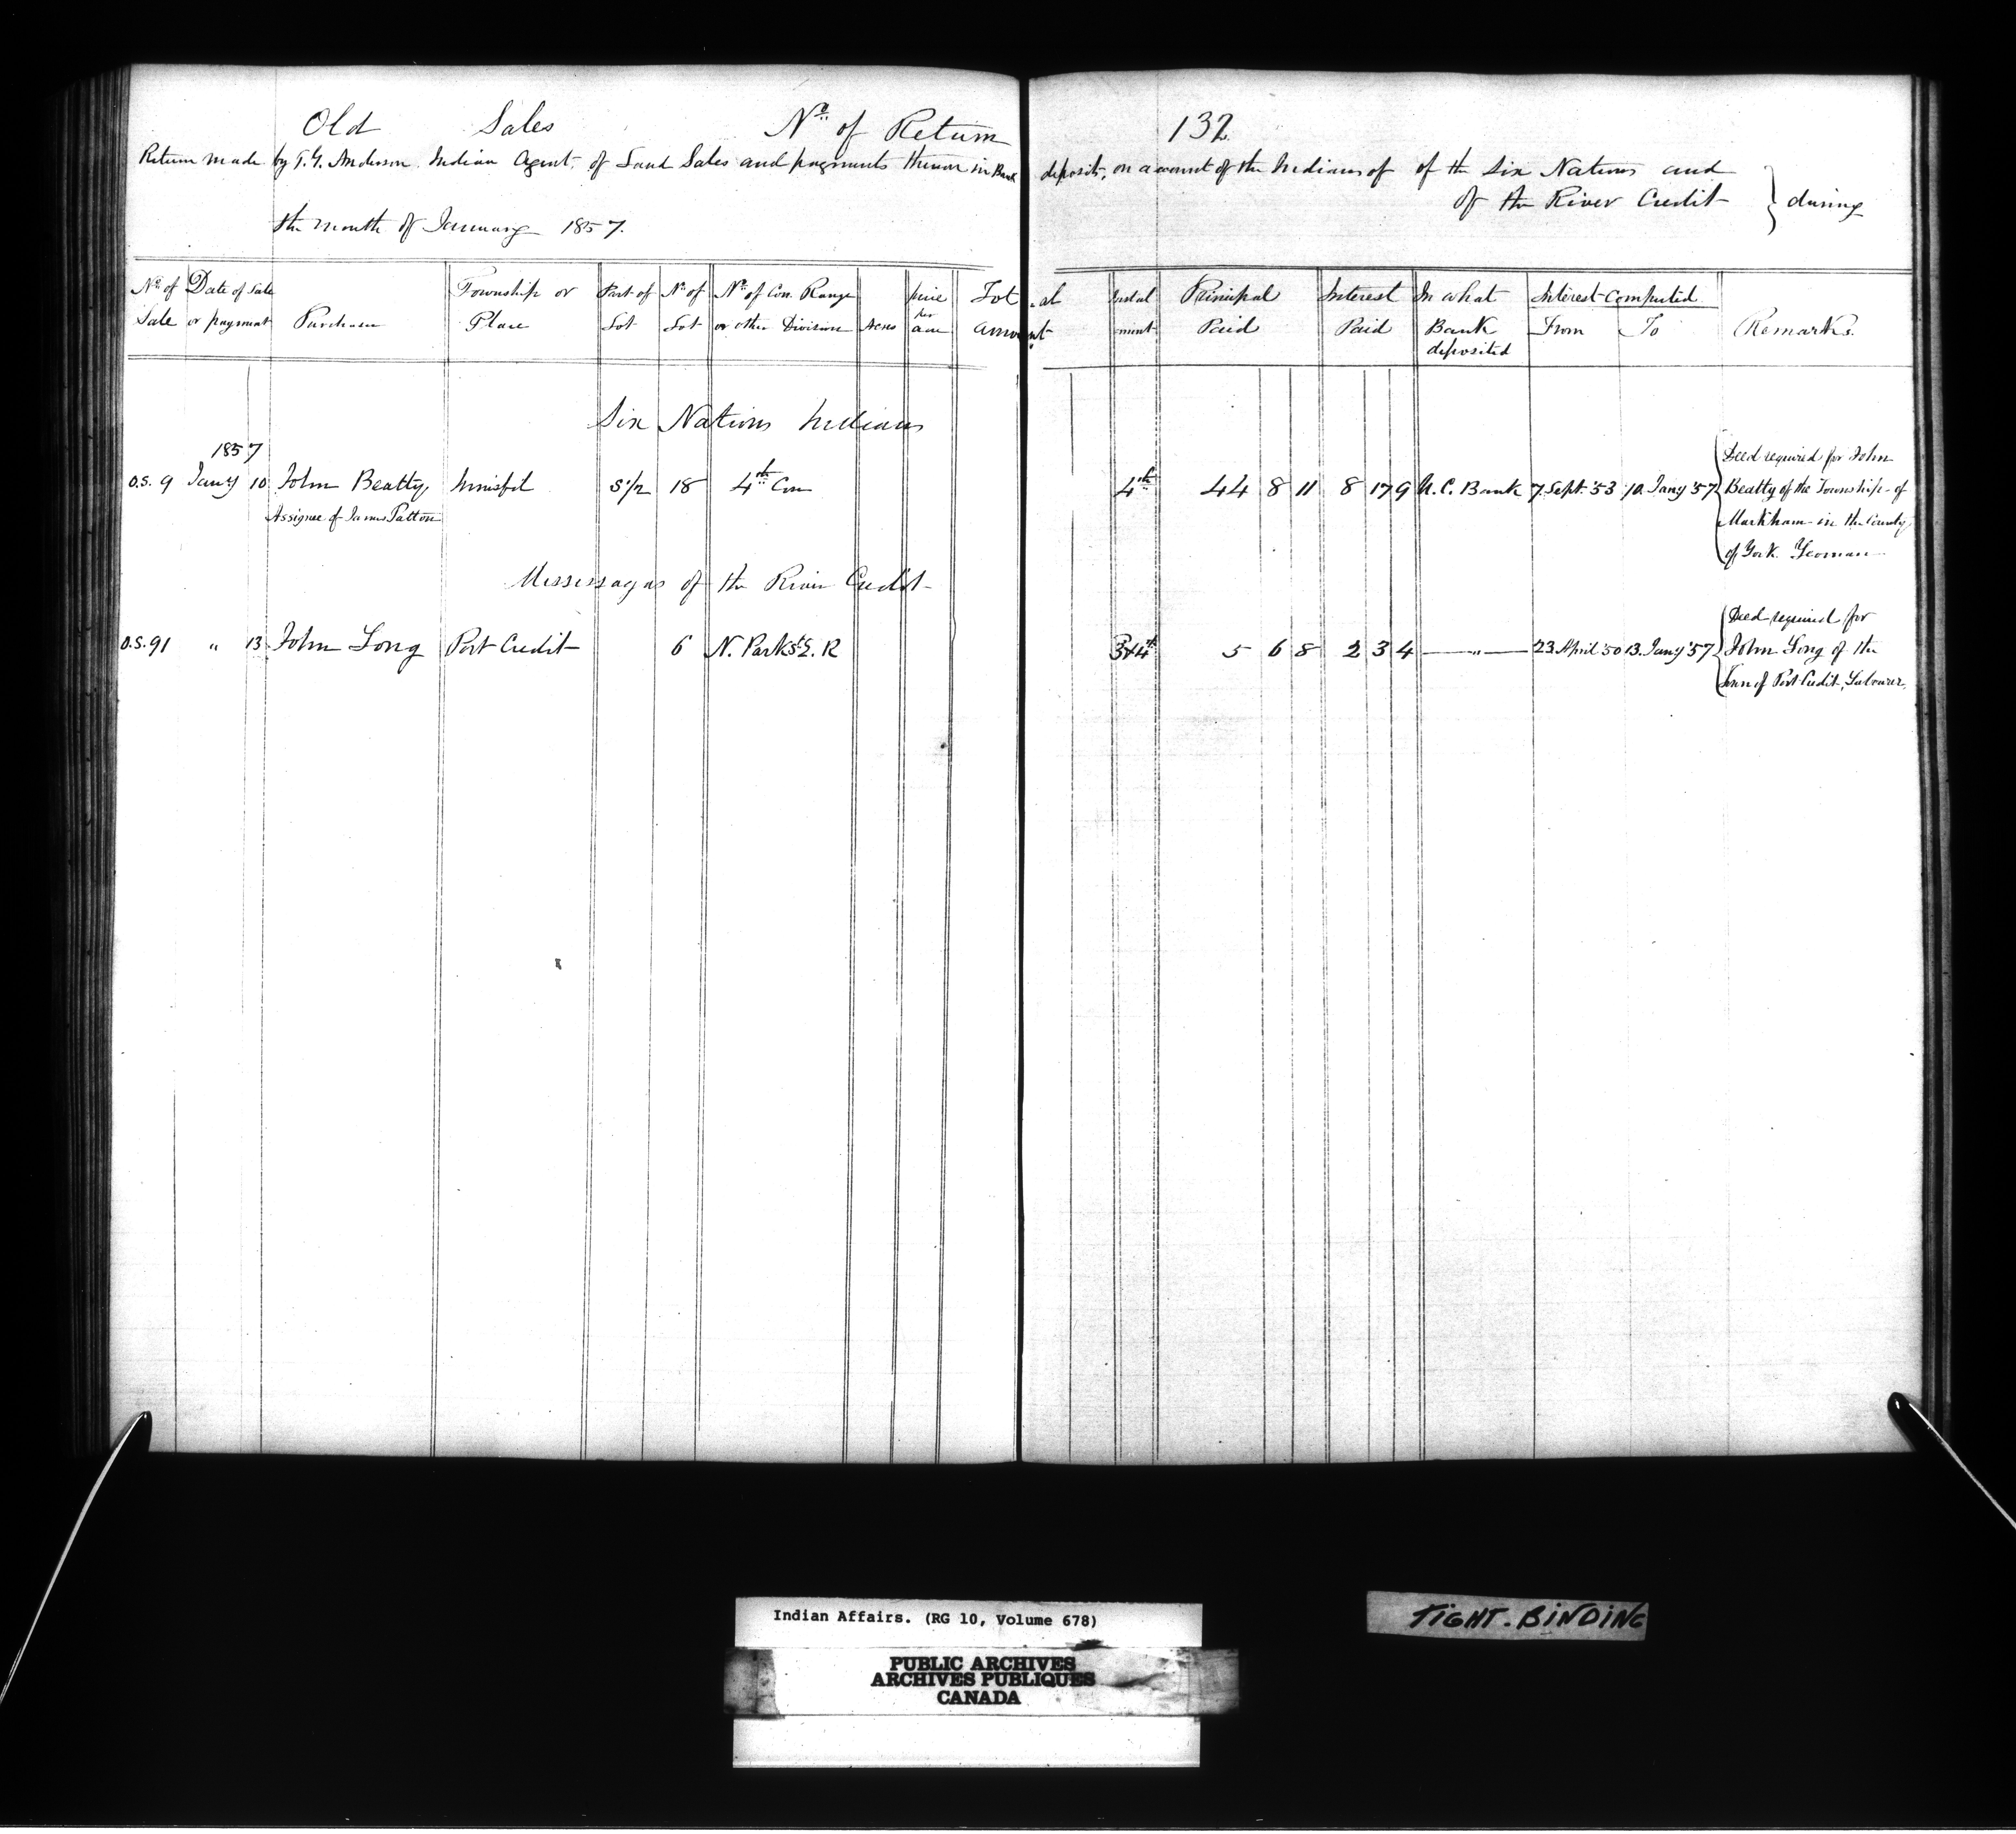 Old Sales Nº of Return 132
Return made by T. G. Anderson Indian Agent, of Land Sales and payments thereon in Bank deposits, on account of the Indians of of the Six Nations and
of the River Credit } during
the month of January 1857.
Nº of Sale | Date of Sale or payment | Purchaser | Township or Place | Part of Lot | Nº of Lot | Nº of Con. Range or other Division | Acres | price per acre | Total amount | Instalment | Principal Paid | Interest Paid | In what Bank deposited | Interest computed From | To | Remarks.
Six Nations Indians
1857
O.S. 9 Jany 10 John Beatty, Innisfil S 1/2 18 4th Con 4th 44 8 11 8 17 9 U.C. Bank 7 Sept. 53 10 Jany '57 Deed required for John
Assignee of James Patton
Beatty of the Township of
Markham in the County
of York Yeoman
Mississagas of the River Credit
O.S. 91 " 13 John Long Port Credit 6 N. Park St E. R 3 & 4th 5 6 8 2 3 4 — " — 23 April '50 13 Jany '57 Deed required for
John Long of the
Town of Port Credit, Labourer.
Indian Affairs. (RG 10, Volume 678)
PUBLIC ARCHIVES
ARCHIVES PUBLIQUES
CANADA
TIGHT. BINDING